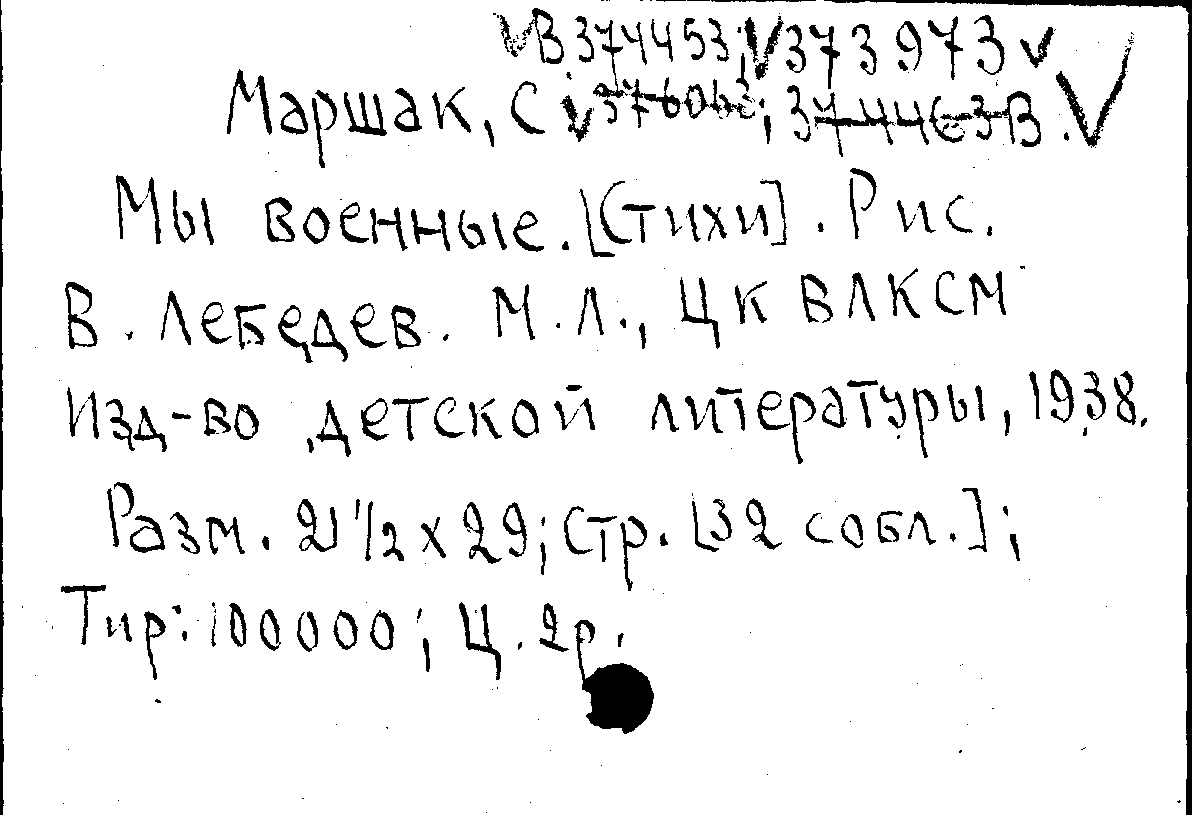 В 374453; 373973
Маршак, С 376063; 374463В.
Мы военные. [Стихи]. Рис.
В. Лебедев. М.Л., ЦК ВЛКСМ
Изд-во детской литературы, 1938.
Разм. 21 1/2 x 29; Стр. [32 с обл.];
Тир: 100000; Ц. 2р.